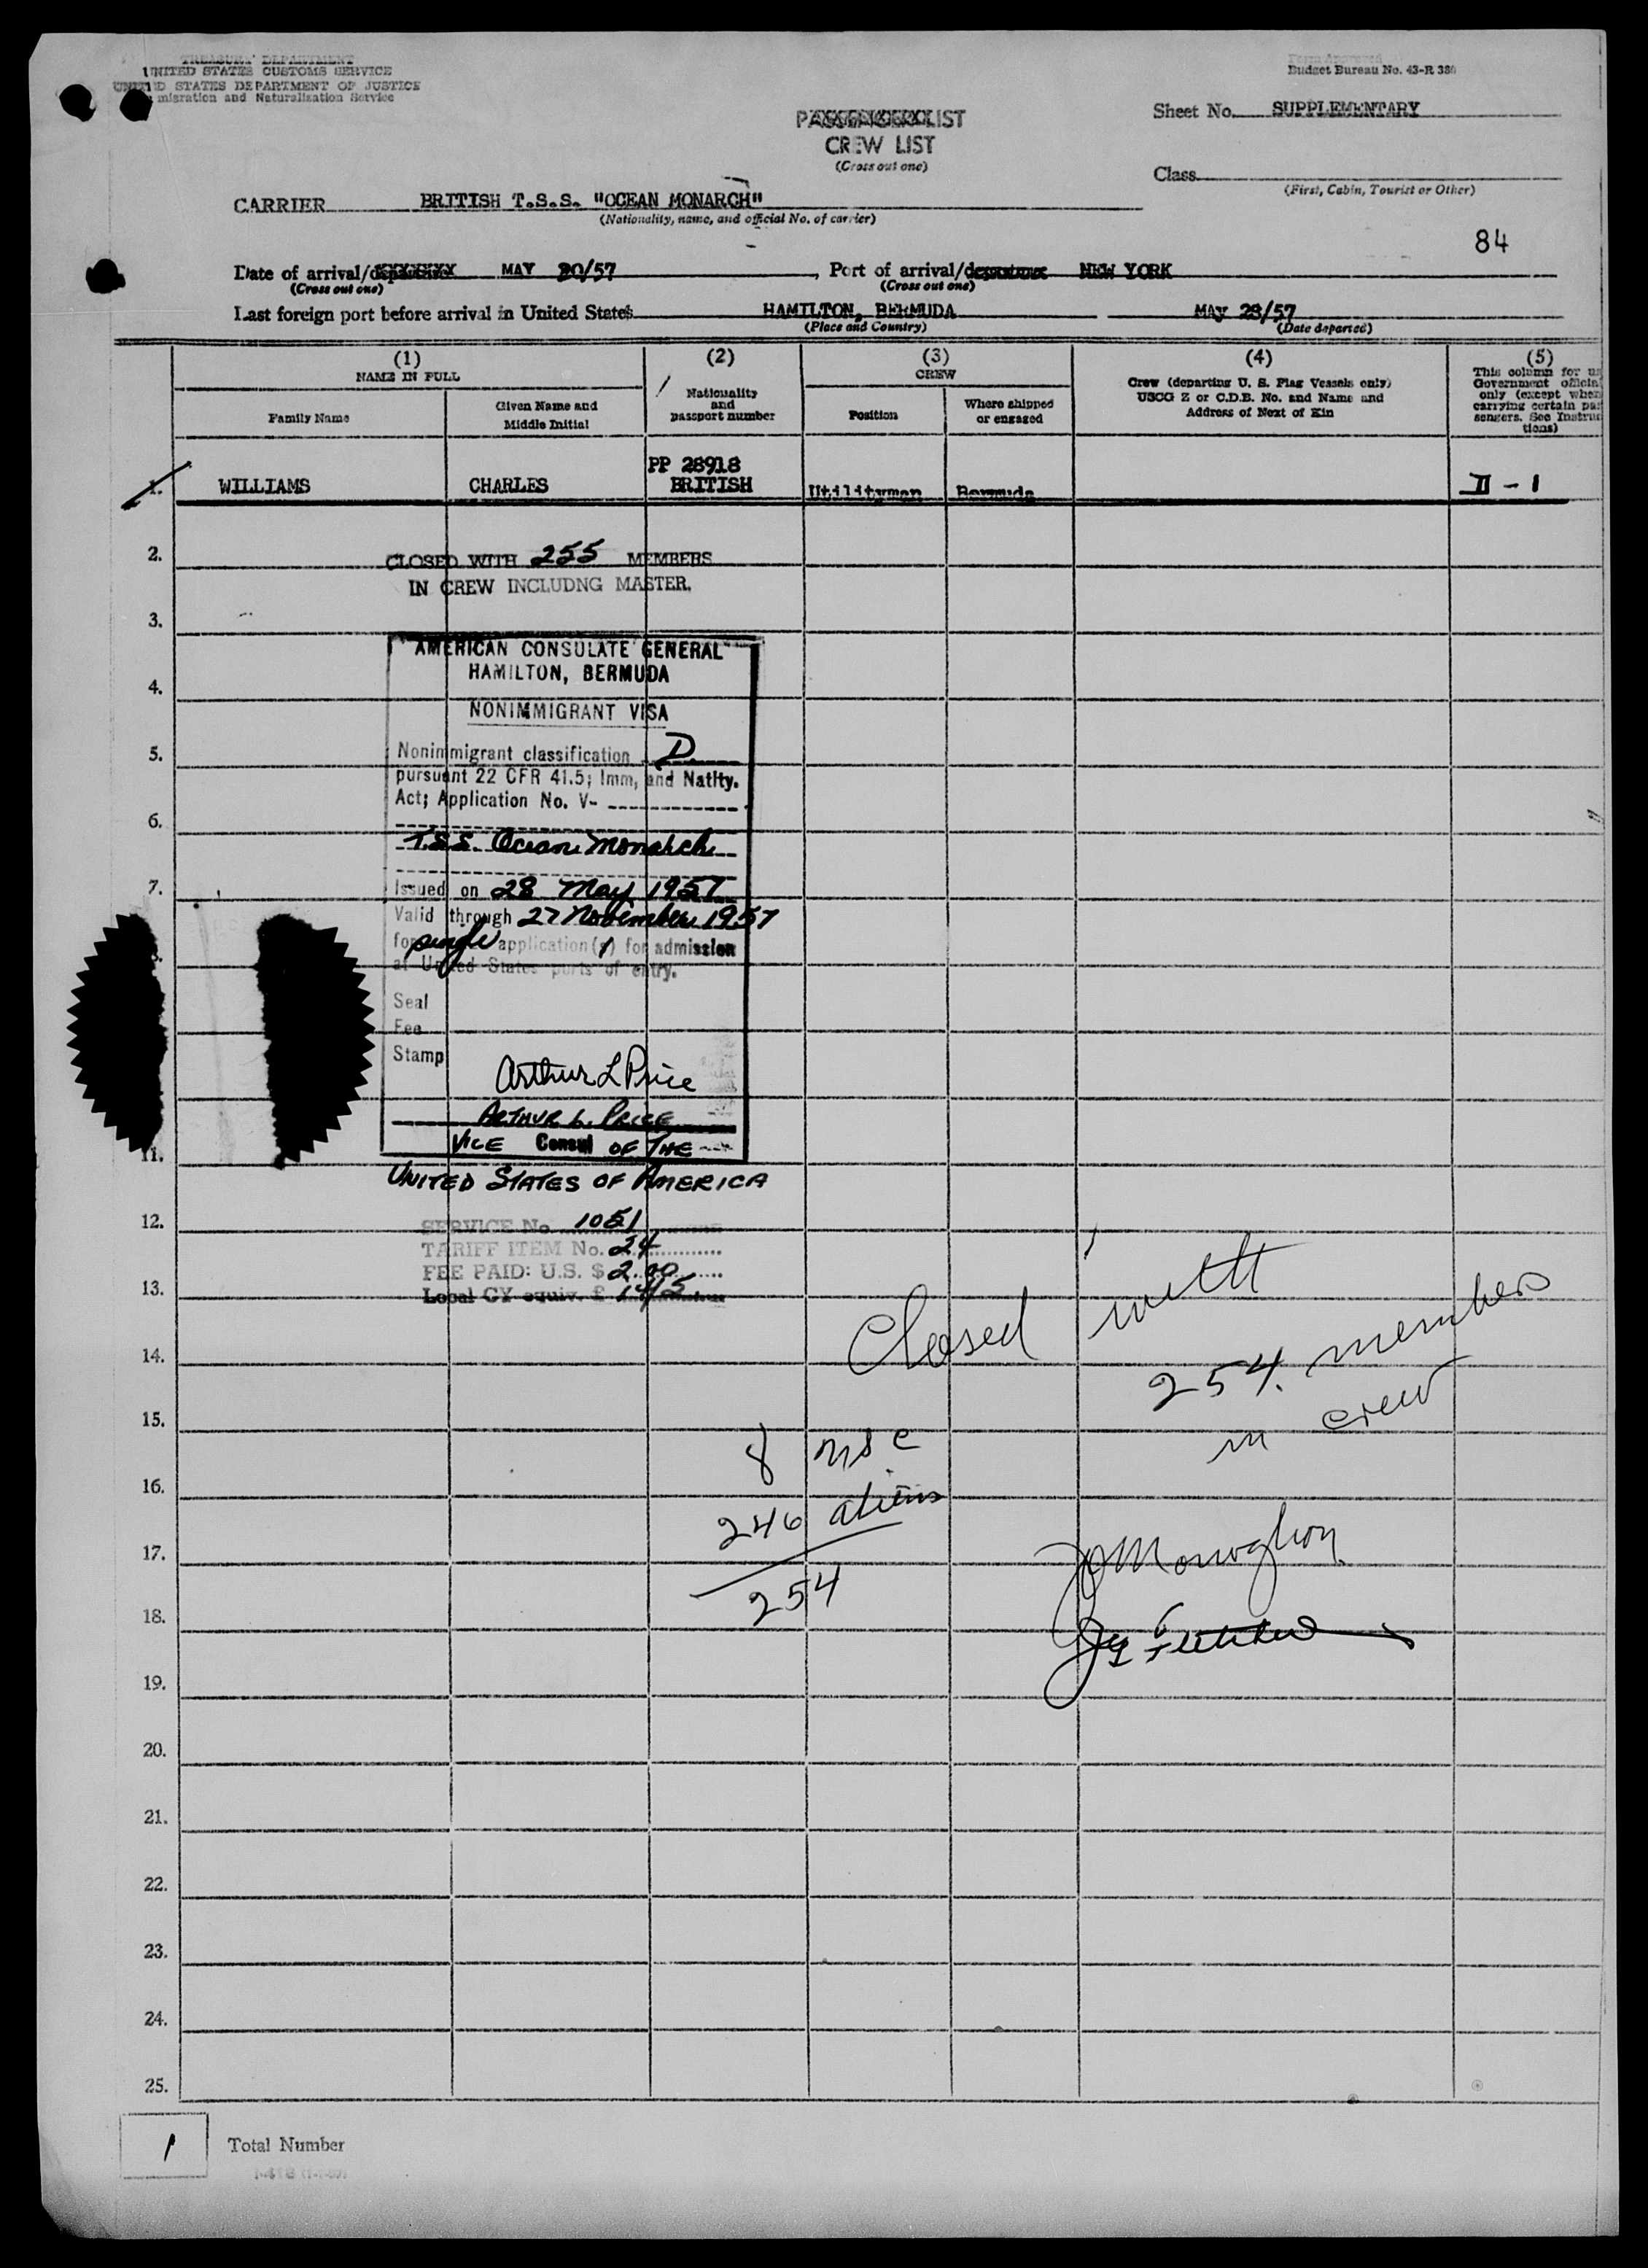 TREASURY DEPARTMENT
UNITED STATES CUSTOMS SERVICE
UNITED STATES DEPARTMENT OF JUSTICE
migration and Naturalization Service
Form Approved
Budget Bureau No. 43-R 386
PASSENGER LIST
CREW LIST
(Cross out one)
Sheet No. SUPPLEMENTARY
Class
(First, Cabin, Tourist or Other)
CARRIER BRITISH T.S.S. "OCEAN MONARCH"
(Nationality, name, and official No. of carrier)
84
Date of arrival/departure MAY /57, Port of arrival/departure NEW YORK
(Cross out one) (Cross out one)
Last foreign port before arrival in United States HAMILTON, BERMUDA MAY 28/57
(Place and Country) (Date departed)
(1) (2) (3) (4) (5)
NAME IN FULL
Family Name
Given Name and
Middle Initial
Nationality
and
passport number
CREW
Position
Where shipped
or engaged
Crew (departing U. S. Flag Vessels only)
USCG Z or C.D.B. No. and Name and
Address of Next of Kin
This column for us
Government official
only (except when
carrying certain pas
sengers. See Instruc
tions)
PP 28918
1. WILLIAMS CHARLES BRITISH Utilityman Bermuda II - 1
2.
CLOSED WITH 255 MEMBERS
IN CREW INCLUDNG MASTER.
3.
AMERICAN CONSULATE GENERAL
HAMILTON, BERMUDA
4.
NONIMMIGRANT VISA
5.
Nonimmigrant classification D
pursuant 22 CFR 41.5; Imm, and Natlty.
Act; Application No. V-
6.
T.S.S. Ocean Monarch
7.
Issued on 28 May 1957
Valid through 27 November 1957
for single application(s) for admission
at United States ports of entry.
Seal
Fee
Stamp
Arthur L Price
ARTHUR L. PRICE
VICE Consul OF THE
11.
UNITED STATES OF AMERICA
12.
SERVICE No. 1051
TARIFF ITEM No. 24
FEE PAID: U.S. $ 2.00
13.
Local CY equiv. £ 14/5
Closed with
254 members
in crew
14.
15.
8 USC
16.
246 aliens
17.
254
18.
19.
20.
21.
22.
23.
24.
25.
1 Total Number